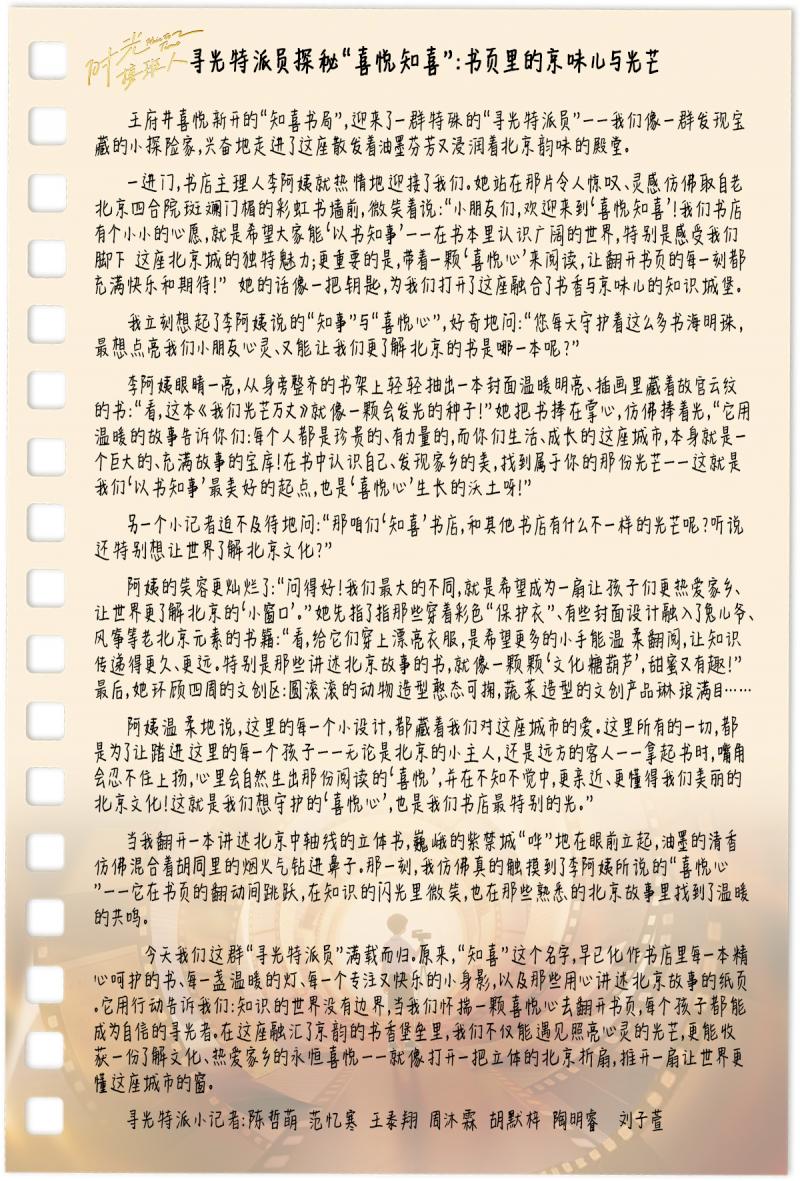 时光接班人
寻光特派员探秘“喜悦知喜”:书页里的京味儿与光芒
王府井喜悦新开的“知喜书局”,迎来了一群特殊的“寻光特派员”——我们像一群发现宝
藏的小探险家,兴奋地走进了这座散发着油墨芬芳又浸润着北京韵味的殿堂。
一进门,书店主理人李阿姨就热情地迎接了我们。她站在那片令人惊叹、灵感仿佛取自老
北京四合院斑斓门楣的彩虹书墙前,微笑着说:“小朋友们,欢迎来到‘喜悦知喜’!我们书店
有个小小的心愿,就是希望大家能‘以书知事’——在书本里认识广阔的世界,特别是感受我们
脚下 这座北京城的独特魅力;更重要的是,带着一颗‘喜悦心’来阅读,让翻开书页的每一刻都
充满快乐和期待!” 她的话像一把钥匙,为我们打开了这座融合了书香与京味儿的知识城堡。
我立刻想起了李阿姨说的“知事”与“喜悦心”,好奇地问:“您每天守护着这么多书海明珠,
最想点亮我们小朋友心灵、又能让我们更了解北京的书是哪一本呢?”
李阿姨眼睛一亮,从身旁整齐的书架上轻轻抽出一本封面温暖明亮、插画里藏着故宫云纹
的书:“看,这本《我们光芒万丈》就像一颗会发光的种子!”她把书捧在掌心,仿佛捧着光,“它用
温暖的故事告诉你们:每个人都是珍贵的、有力量的,而你们生活、成长的这座城市,本身就是一
个巨大的、充满故事的宝库!在书中认识自己、发现家乡的美,找到属于你的那份光芒——这就是
我们‘以书知事’最美好的起点,也是‘喜悦心’生长的沃土呀!”
另一个小记者迫不及待地问:“那咱们‘知喜’书店,和其他书店有什么不一样的光芒呢?听说
还特别想让世界了解北京文化?”
阿姨的笑容更灿烂了:“问得好!我们最大的不同,就是希望成为一扇让孩子们更热爱家乡、
让世界更了解北京的‘小窗口’。”她先指了指那些穿着彩色“保护衣”、有些封面设计融入了兔儿爷、
风筝等老北京元素的书籍:“看,给它们穿上漂亮衣服,是希望更多的小手能温 柔翻阅,让知识
传递得更久、更远。特别是那些讲述北京故事的书,就像一颗颗‘文化糖葫芦’,甜蜜又有趣!”
最后,她环顾四周的文创区:圆滚滚的动物造型憨态可掬,蔬菜造型的文创产品琳琅满目……
阿姨温 柔地说,这里的每一个小设计,都藏着我们对这座城市的爱。这里所有的一切,都
是为了让踏进这里的每一个孩子——无论是北京的小主人,还是远方的客人——拿起书时,嘴角
会忍不住上扬,心里会自然生出那份阅读的‘喜悦’,并在不知不觉中,更亲近、更懂得我们美丽的
北京文化!这就是我们想守护的‘喜悦心’,也是我们书店最特别的光。”
当我翻开一本讲述北京中轴线的立体书,巍峨的紫禁城“哗”地在眼前立起,油墨的清香
仿佛混合着胡同里的烟火气钻进鼻子。那一刻,我仿佛真的触摸到了李阿姨所说的“喜悦心
”——它在书页的翻动间跳跃,在知识的闪光里微笑,也在那些熟悉的北京故事里找到了温暖
的共鸣。
今天我们这群“寻光特派员”满载而归。原来,“知喜”这个名字,早已化作书店里每一本精
心呵护的书、每一盏温暖的灯、每一个专注又快乐的小身影,以及那些用心讲述北京故事的纸页
.它用行动告诉我们:知识的世界没有边界,当我们怀揣一颗喜悦心去翻开书页,每个孩子都能
成为自信的寻光者。在这座融汇了京韵的书香堡垒里,我们不仅能遇见照亮心灵的光芒,更能收
获一份了解文化、热爱家乡的永恒喜悦——就像打开一把立体的北京折扇,推开一扇让世界更
懂这座城市的窗。
寻光特派小记者:陈哲萌 范忆寒 王泰翔 周沐霖 胡默梓 陶明睿 刘子萱